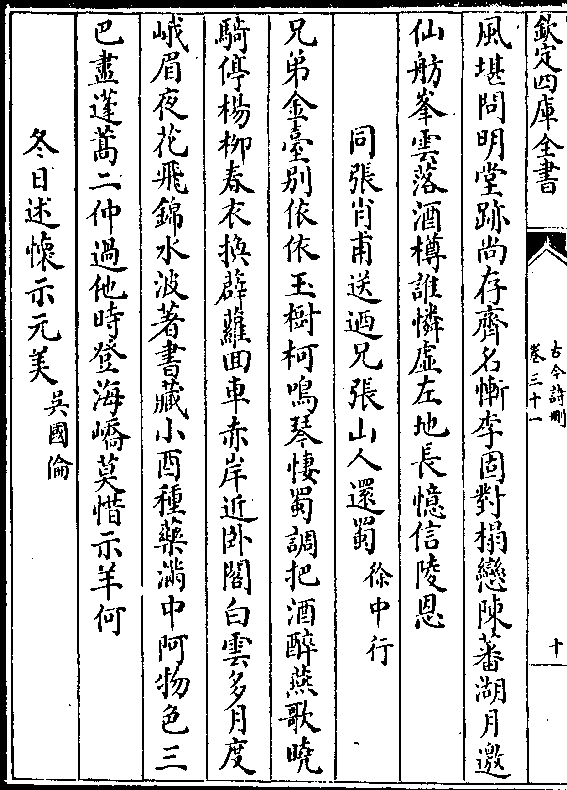 欽定四庫全書
古今詩刪
卷三十一
十
風堪問明堂跡尚存齊名慚李固對榻戀陳蕃湖月邀
仙舫峯雲落酒樽誰憐虛左地長憶信陵恩
同張肖甫送迺兄張山人還蜀
徐中行
兄弟金臺别依依玉樹柯鳴琴悽蜀調把酒醉燕歌曉
騎停楊柳春衣換薜蘿囬車赤岸近卧閣白雲多月度
峨眉夜花飛錦水波著書藏小酉種藥滿中阿物色三
巴盡蓬蒿二仲過他時登海嶠莫惜示羊何
冬日述懷示元美
吳國倫